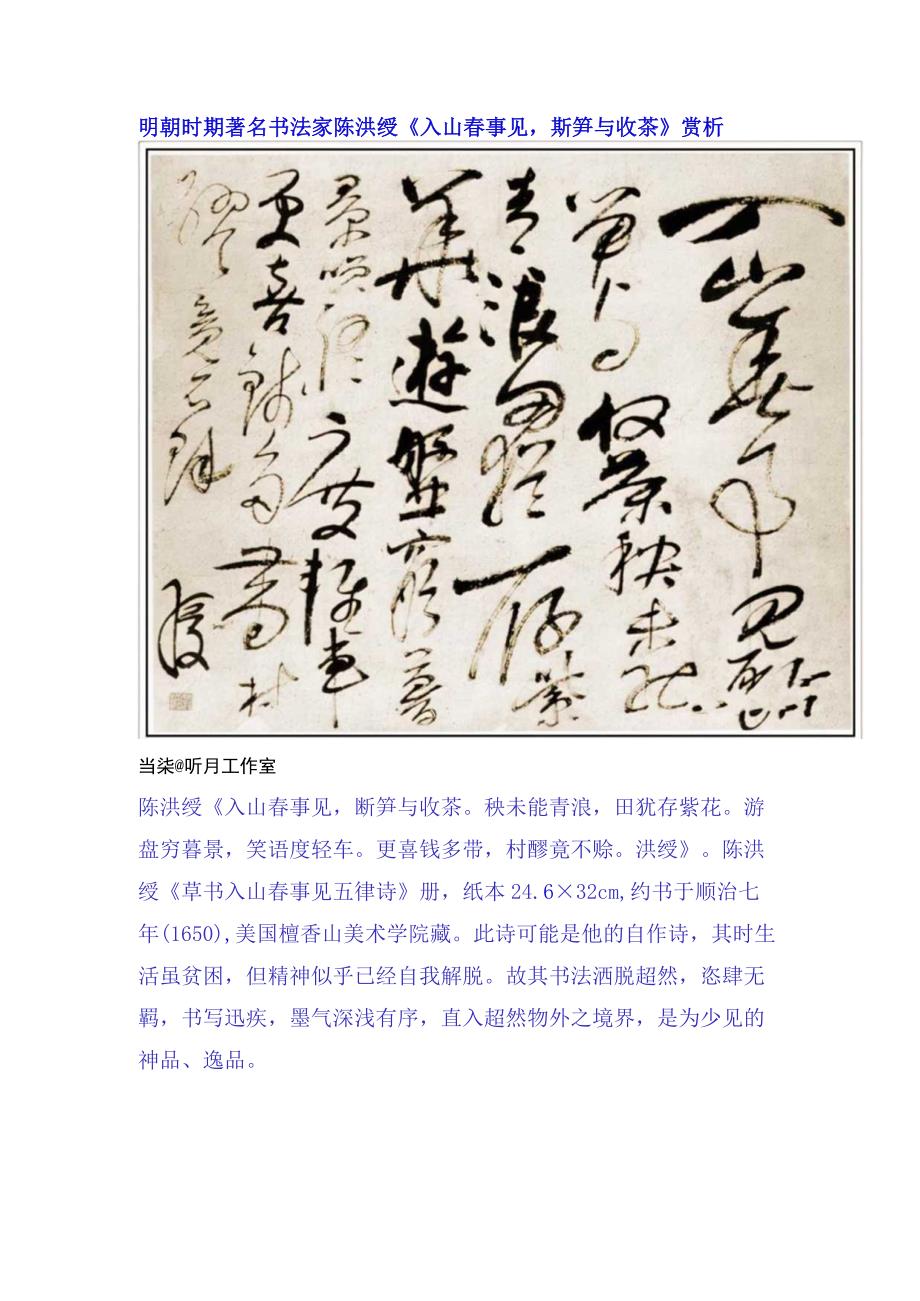 明朝时期著名书法家陈洪绶《入山春事见，斯笋与收茶》赏析
入山春事见斷
筍与收茶秧未能
青浪田猶存紫
華遊盤窮暮
景咲語度輕車
更喜錢多帶村
醪竟不賒
洪綬
当柒@听月工作室
陈洪绶《入山春事见，断笋与收茶。秧未能青浪，田犹存紫花。游
盘穷暮景，笑语度轻车。更喜钱多带，村醪竟不赊。洪绶》。陈洪
绶《草书入山春事见五律诗》册，纸本24.6×32cm,约书于顺治七
年(1650),美国檀香山美术学院藏。此诗可能是他的自作诗，其时生
活虽贫困，但精神似乎已经自我解脱。故其书法洒脱超然，恣肆无
羁，书写迅疾，墨气深浅有序，直入超然物外之境界，是为少见的
神品、逸品。